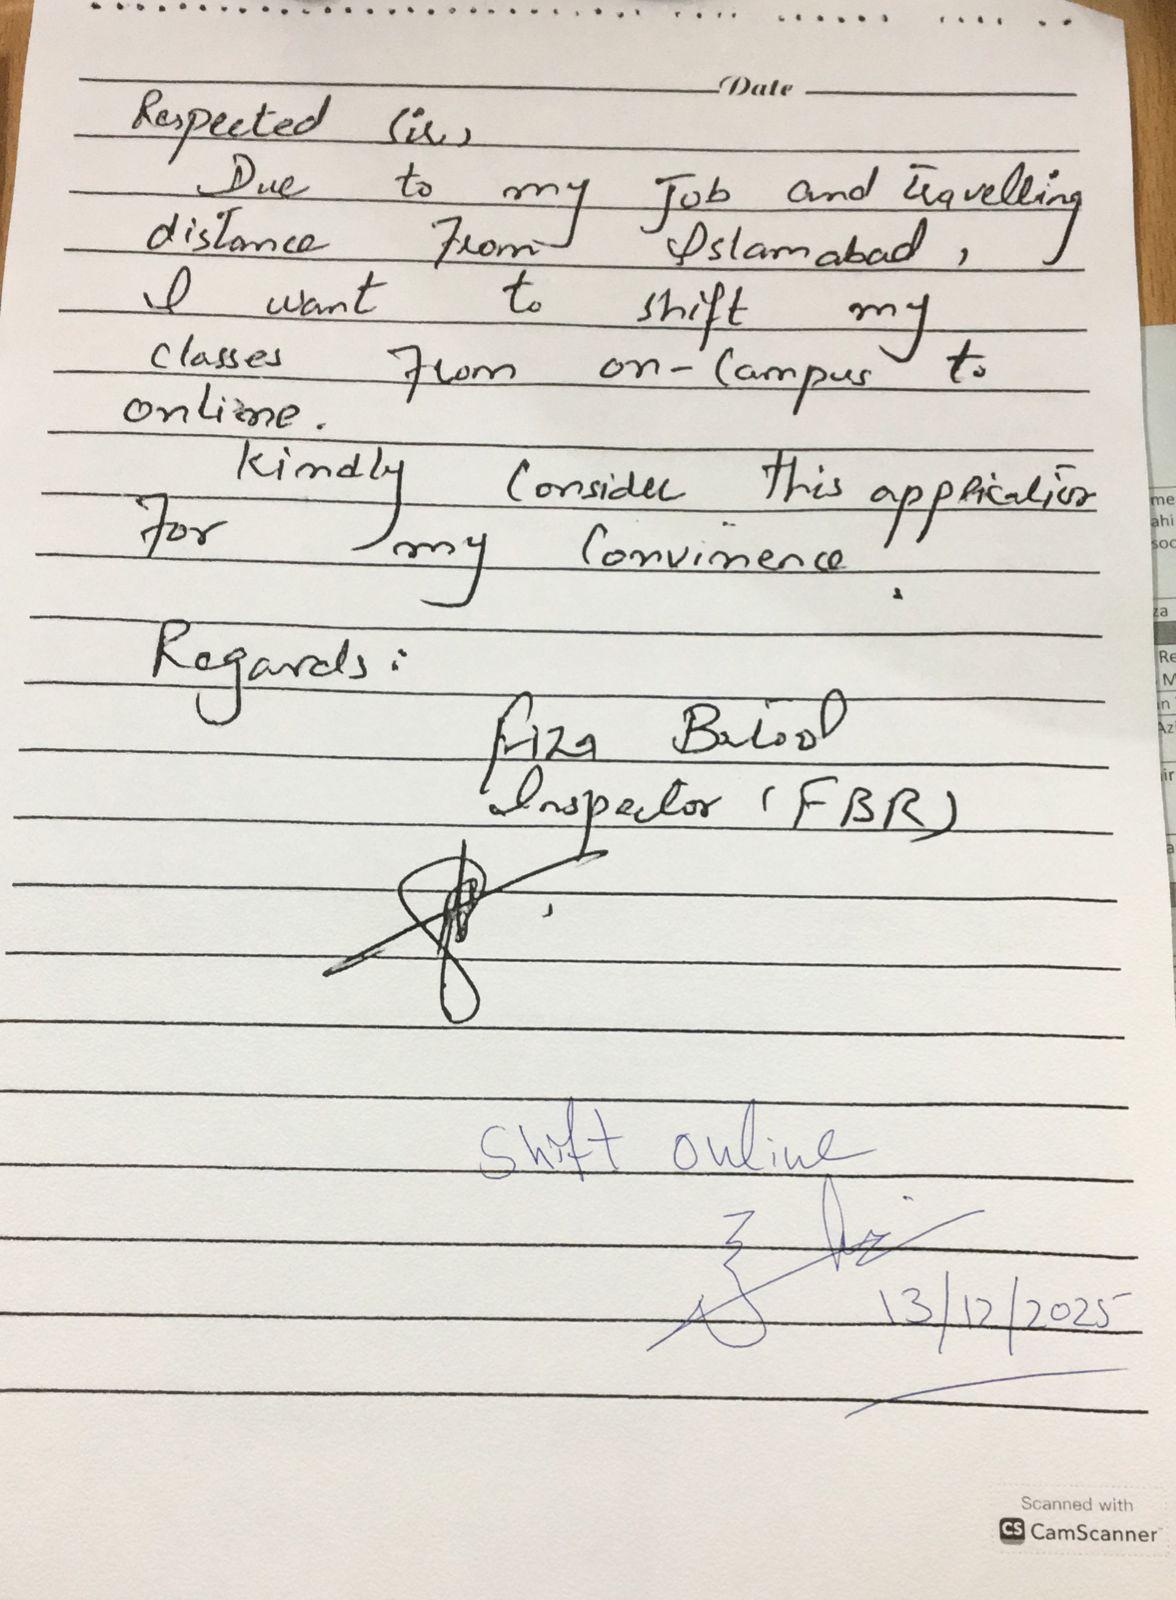 Date
Respected Sir,
Due to my Job and travelling
distance From Islamabad,
I want to shift my
classes From on-Campus to
online.
Kindly Consider this application
For my Convinence.
Regards:
Fiza Batool
Inspector (FBR)
Shift online
13/12/2025
me
ahi
soc
za
Re
M
in
Az
ir
a
Scanned with
CS CamScanner